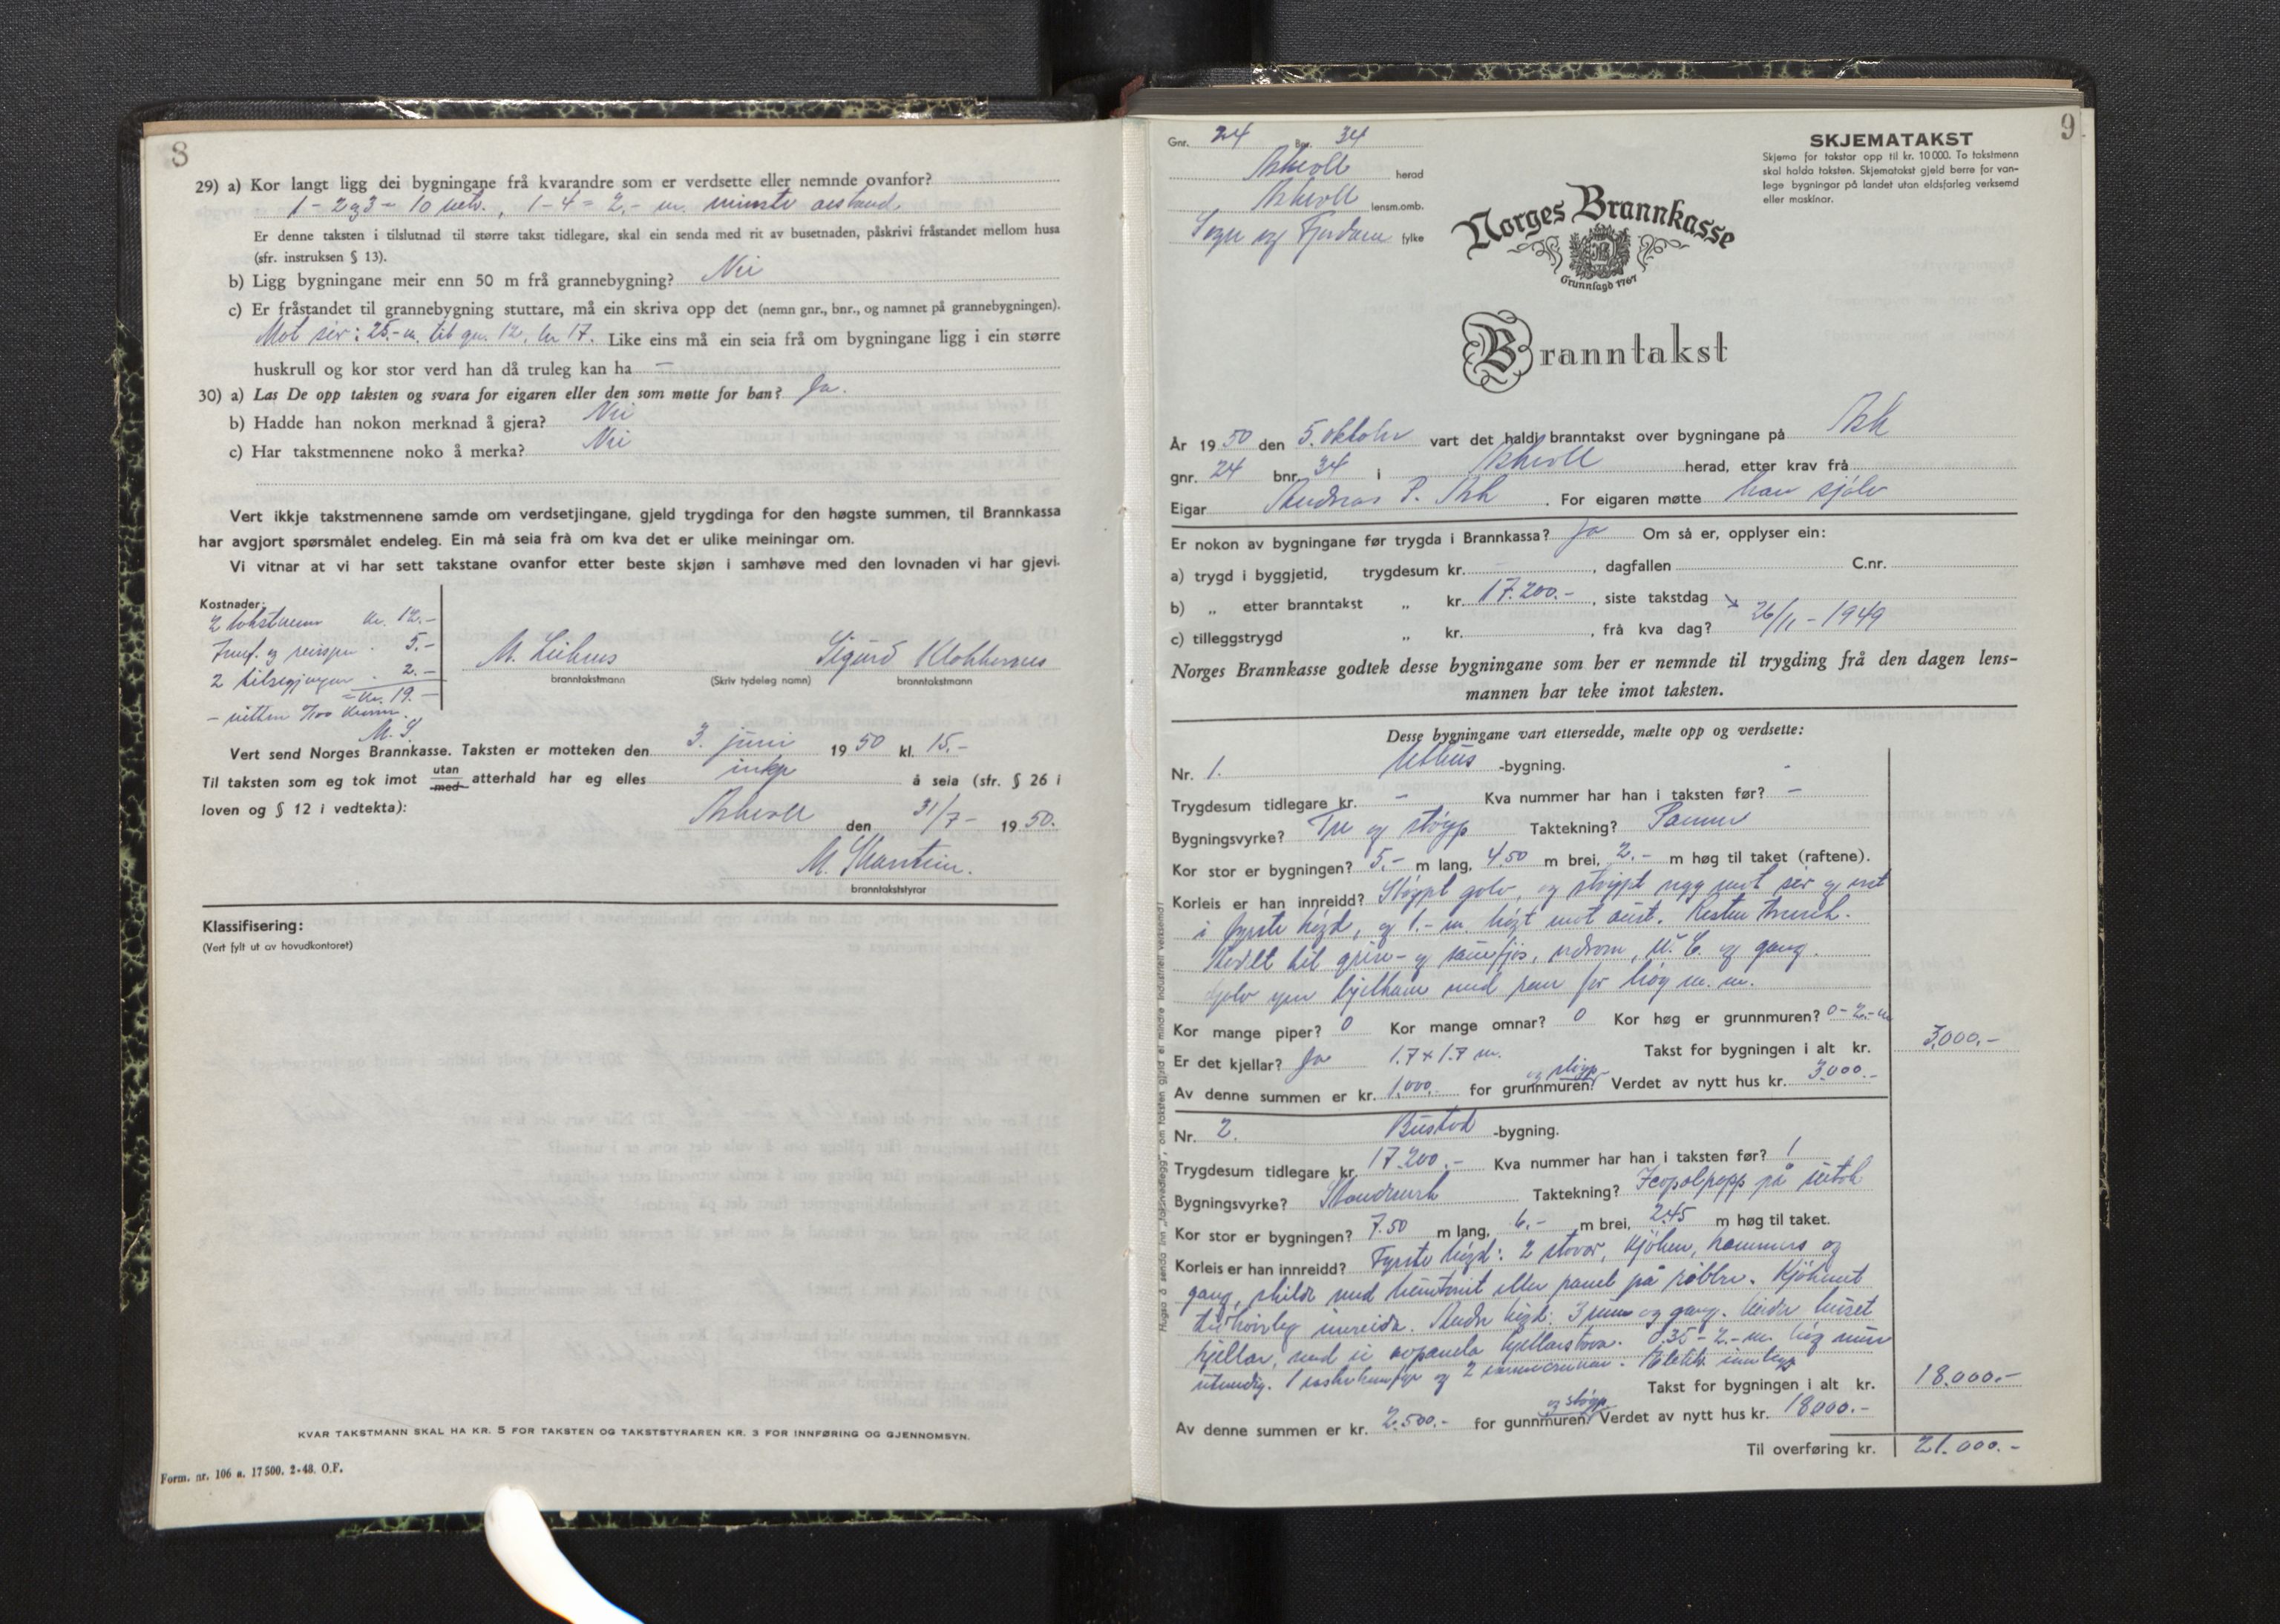 8
29) a) Kor langt ligg dei bygningane frå kvarandre som er verdsette eller nemnde ovanfor?
1 - 2 og 3 = 10 , 1 - 4 = 2,- m. minste avstand.
Er denne taksten i tilslutnad til større takst tidlegare, skal ein senda med rit av busetnaden, påskrivi fråstandet mellom husa
(sfr. instruksen § 13).
b) Ligg bygningane meir enn 50 m frå grannebygning? Nei
c) Er fråstandet til grannebygning stuttare, må ein skriva opp det (nemn gnr., bnr., og namnet på grannebygningen).
Mot sør: 25,- m. til gn. 12, br 17. Like eins må ein seia frå om bygningane ligg i ein større
huskrull og kor stor verd han då truleg kan ha —
30) a) Las De opp taksten og svara for eigaren eller den som møtte for han? Ja.
b) Hadde han nokon merknad å gjera? Nei
c) Har takstmennene noko å merka? Nei
Vert ikkje takstmennene samde om verdsetjingane, gjeld trygdinga for den høgste summen, til Brannkassa
har avgjort spørsmålet endeleg. Ein må seia frå om kva det er ulike meiningar om.
Vi vitnar at vi har sett takstane ovanfor etter beste skjøn i samhøve med den lovnaden vi har gjevi.
Kostnader:
2 takstmenn kr. 12.-
og 5.-
2 tilsegjingar . 2.-
= kr. 19.-
- nitten 0/00 kroner.
M. S.
M. Sigurd Klokkernes
branntakstmann (Skriv tydeleg namn) branntakstmann
Vert send Norges Brannkasse. Taksten er motteken den 3. juni 1950 kl. 15.-
Til taksten som eg tok imot utan/med atterhald har eg elles inkje å seia (sfr. § 26 i
loven og § 12 i vedtekta):
Askvoll den 31/7 - 1950.
M.
branntakststyrar
Klassifisering:
(Vert fylt ut av hovudkontoret)
KVAR TAKSTMANN SKAL HA KR. 5 FOR TAKSTEN OG TAKSTSTYRAREN KR. 3 FOR INNFØRING OG GJENNOMSYN.
Form. nr. 106 a. 17500. 2-48. O.F.
9
Gnr. 24 Bnr. 34
Askvoll herad
Askvoll lensm.omb.
Sogn og Fjordane fylke
SKJEMATAKST
Skjema for takstar opp til kr. 10 000. To takstmenn
skal halda taksten. Skjematakst gjeld berre for van-
lege bygningar på landet utan eldsfarleg verksemd
eller maskinar.
Norges Brannkasse
Grunnlagd 1767
Branntakst
År 1950 den 5. oktober vart det haldi branntakst over bygningane på Ask
gnr. 24 bnr. 34 i Askvoll herad, etter krav frå
Eigar Andreas P. Ask. For eigaren møtte han sjølv
Er nokon av bygningane før trygda i Brannkassa? Ja Om så er, opplyser ein:
a) trygd i byggjetid, trygdesum kr. , dagfallen C.nr.
b) „ etter branntakst „ kr. 17.200.- , siste takstdag
c) tilleggstrygd „ kr. , frå kva dag? 26/11 - 1949
Norges Brannkasse godtek desse bygningane som her er nemnde til trygding frå den dagen lens-
mannen har teke imot taksten.
Desse bygningane vart ettersedde, mælte opp og verdsette:
Nr. 1. Uthus -bygning.
Trygdesum tidlegare kr. - Kva nummer har han i taksten før? -
Bygningsvyrke? Tre og støyp Taktekning? Panner
Kor stor er bygningen? 5,- m lang, 4.50 m brei, 2.- m høg til taket (raftene).
Korleis er han innreidd? Støypt golv, og støypt vegg mot sør og vest
i fyrste høgd, og 1.- m. høgt mot aust. Resten
til grise- og sauefjøs, vedrom, W. C. og gang.
Golv yver bjelkane med rom for høy m. m.
Kor mange piper? 0 Kor mange omnar? 0 Kor høg er grunnmuren? 0-2.- m
Er det kjellar? Ja 1.7 x 1.7 m. Takst for bygningen i alt kr. 3.000.-
Av denne summen er kr. 1.000.- for grunnmuren og støyp. Verdet av nytt hus kr. 3.000.-
Nr. 2. Bustad -bygning.
Trygdesum tidlegare kr. 17.200.- Kva nummer har han i taksten før? 1
Bygningsvyrke? Taktekning? på sutak
Kor stor er bygningen? 7.50 m lang, 6.- m brei, 2.45 m høg til taket.
Korleis er han innreidd? Fyrste høgd: 2 stover, kjøken, kammers og
gang, med eller panel på Kjøkenet
innreidd. Andre høgd: 3 rom og gang. Under huset
kjellar, med ei kjellarstova. 0.35 - 2.- m. høg mur
utvendig. 1 og 2
Takst for bygningen i alt kr. 18.000.-
Av denne summen er kr. 2.500.- for gunnmuren og støyp. Verdet av nytt hus kr. 18000.-
Til overføring kr. 21.000.-
Hugsa å senda inn „Takstvedlegg", om taksten gjeld ei mindre industriell verksemd!